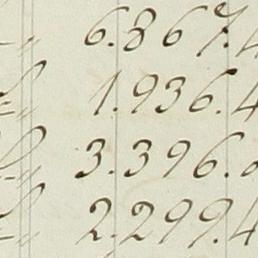 6.867.4
1.936.4
3.396.
2.299.4